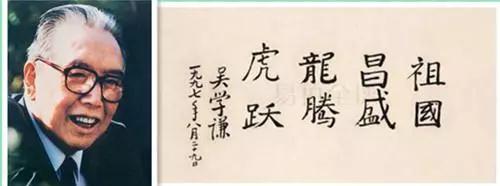 祖國
昌盛
龍騰
虎跃
吴学谦
一九九七年八月二十九日